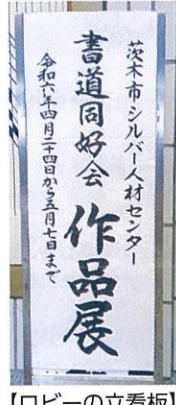 茨木市シルバー人材センター
書道同好会
作品展
令和六年四月二十四日から五月七日まで
【ロビーの立看板】